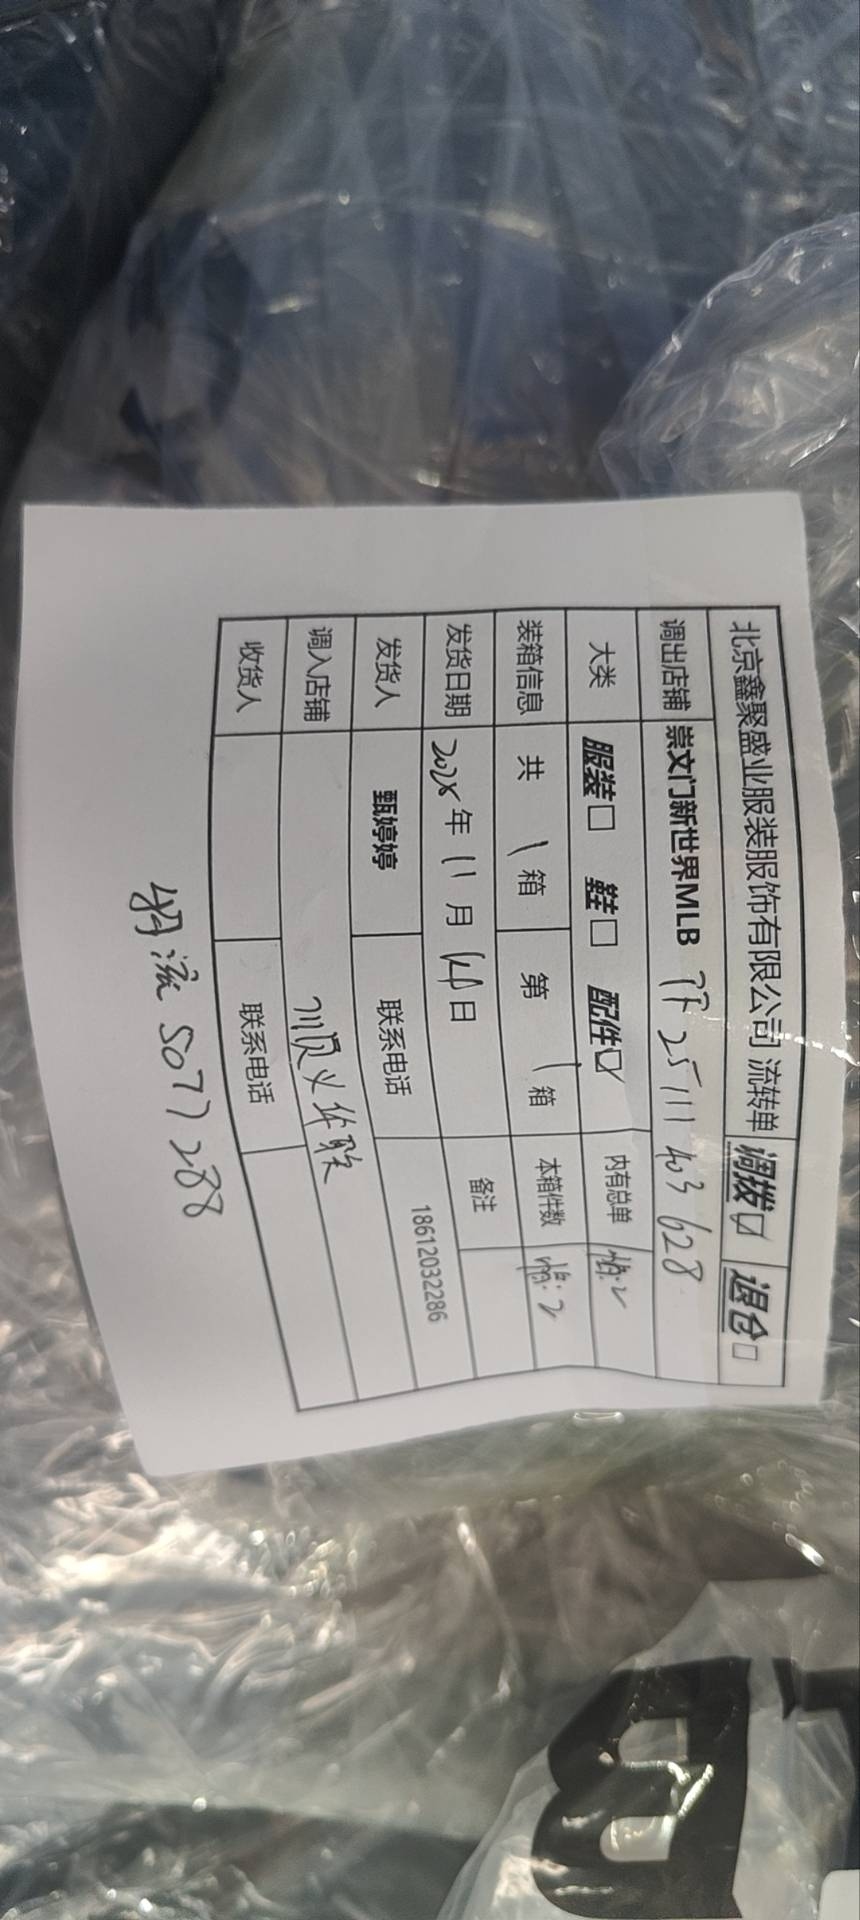 北京鑫聚盛业服装服饰有限公司 流转单 调拨☑ 退仓□
调出店铺 崇文门新世界MLB 25111403628
大类 服装□ 鞋□ 配件☑ 内有总单 帽:2
装箱信息 共 1 箱 第 1 箱 本箱件数 帽:2
发货日期 2025年11月14日 备注
发货人 甄婷婷 联系电话 18612032286
调入店铺 顺义华联
收货人 联系电话
物流5077288
B